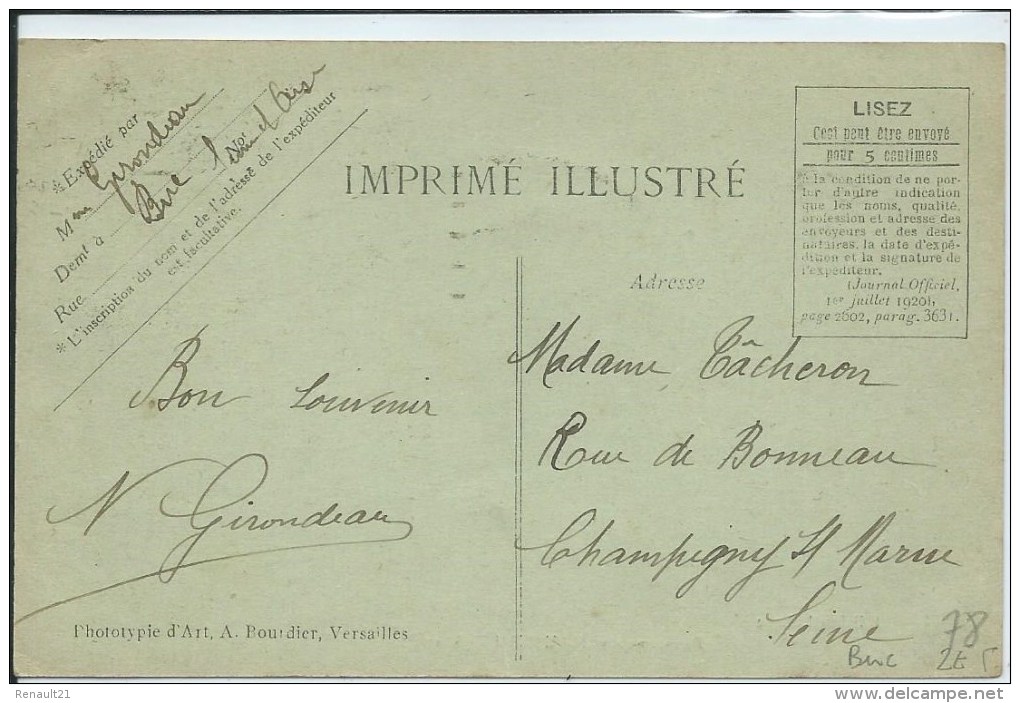 * Expédié par
Mme Girondeau
Demt à Buc Seine et Oise
Rue No
* L'inscription du nom et de l'adresse de l'expéditeur
est facultative.
IMPRIMÉ ILLUSTRÉ
LISEZ
Ceci peut être envoyé
pour 5 centimes
à la condition de ne por-
ter d'autre indication
que les noms, qualité,
profession et adresse des
envoyeurs et des desti-
nataires, la date d'expé-
dition et la signature de
l'expéditeur.
(Journal Officiel,
1er juillet 1920),
page 2602, parag. 3631.
Adresse
Bon Souvenir
N Girondeau
Madame Tâcheron
Rue de Bonneau
Champigny S/ Marne
Seine
Phototypie d'Art, A. Bourdier, Versailles
78
Buc
Renault21
www.delcampe.net